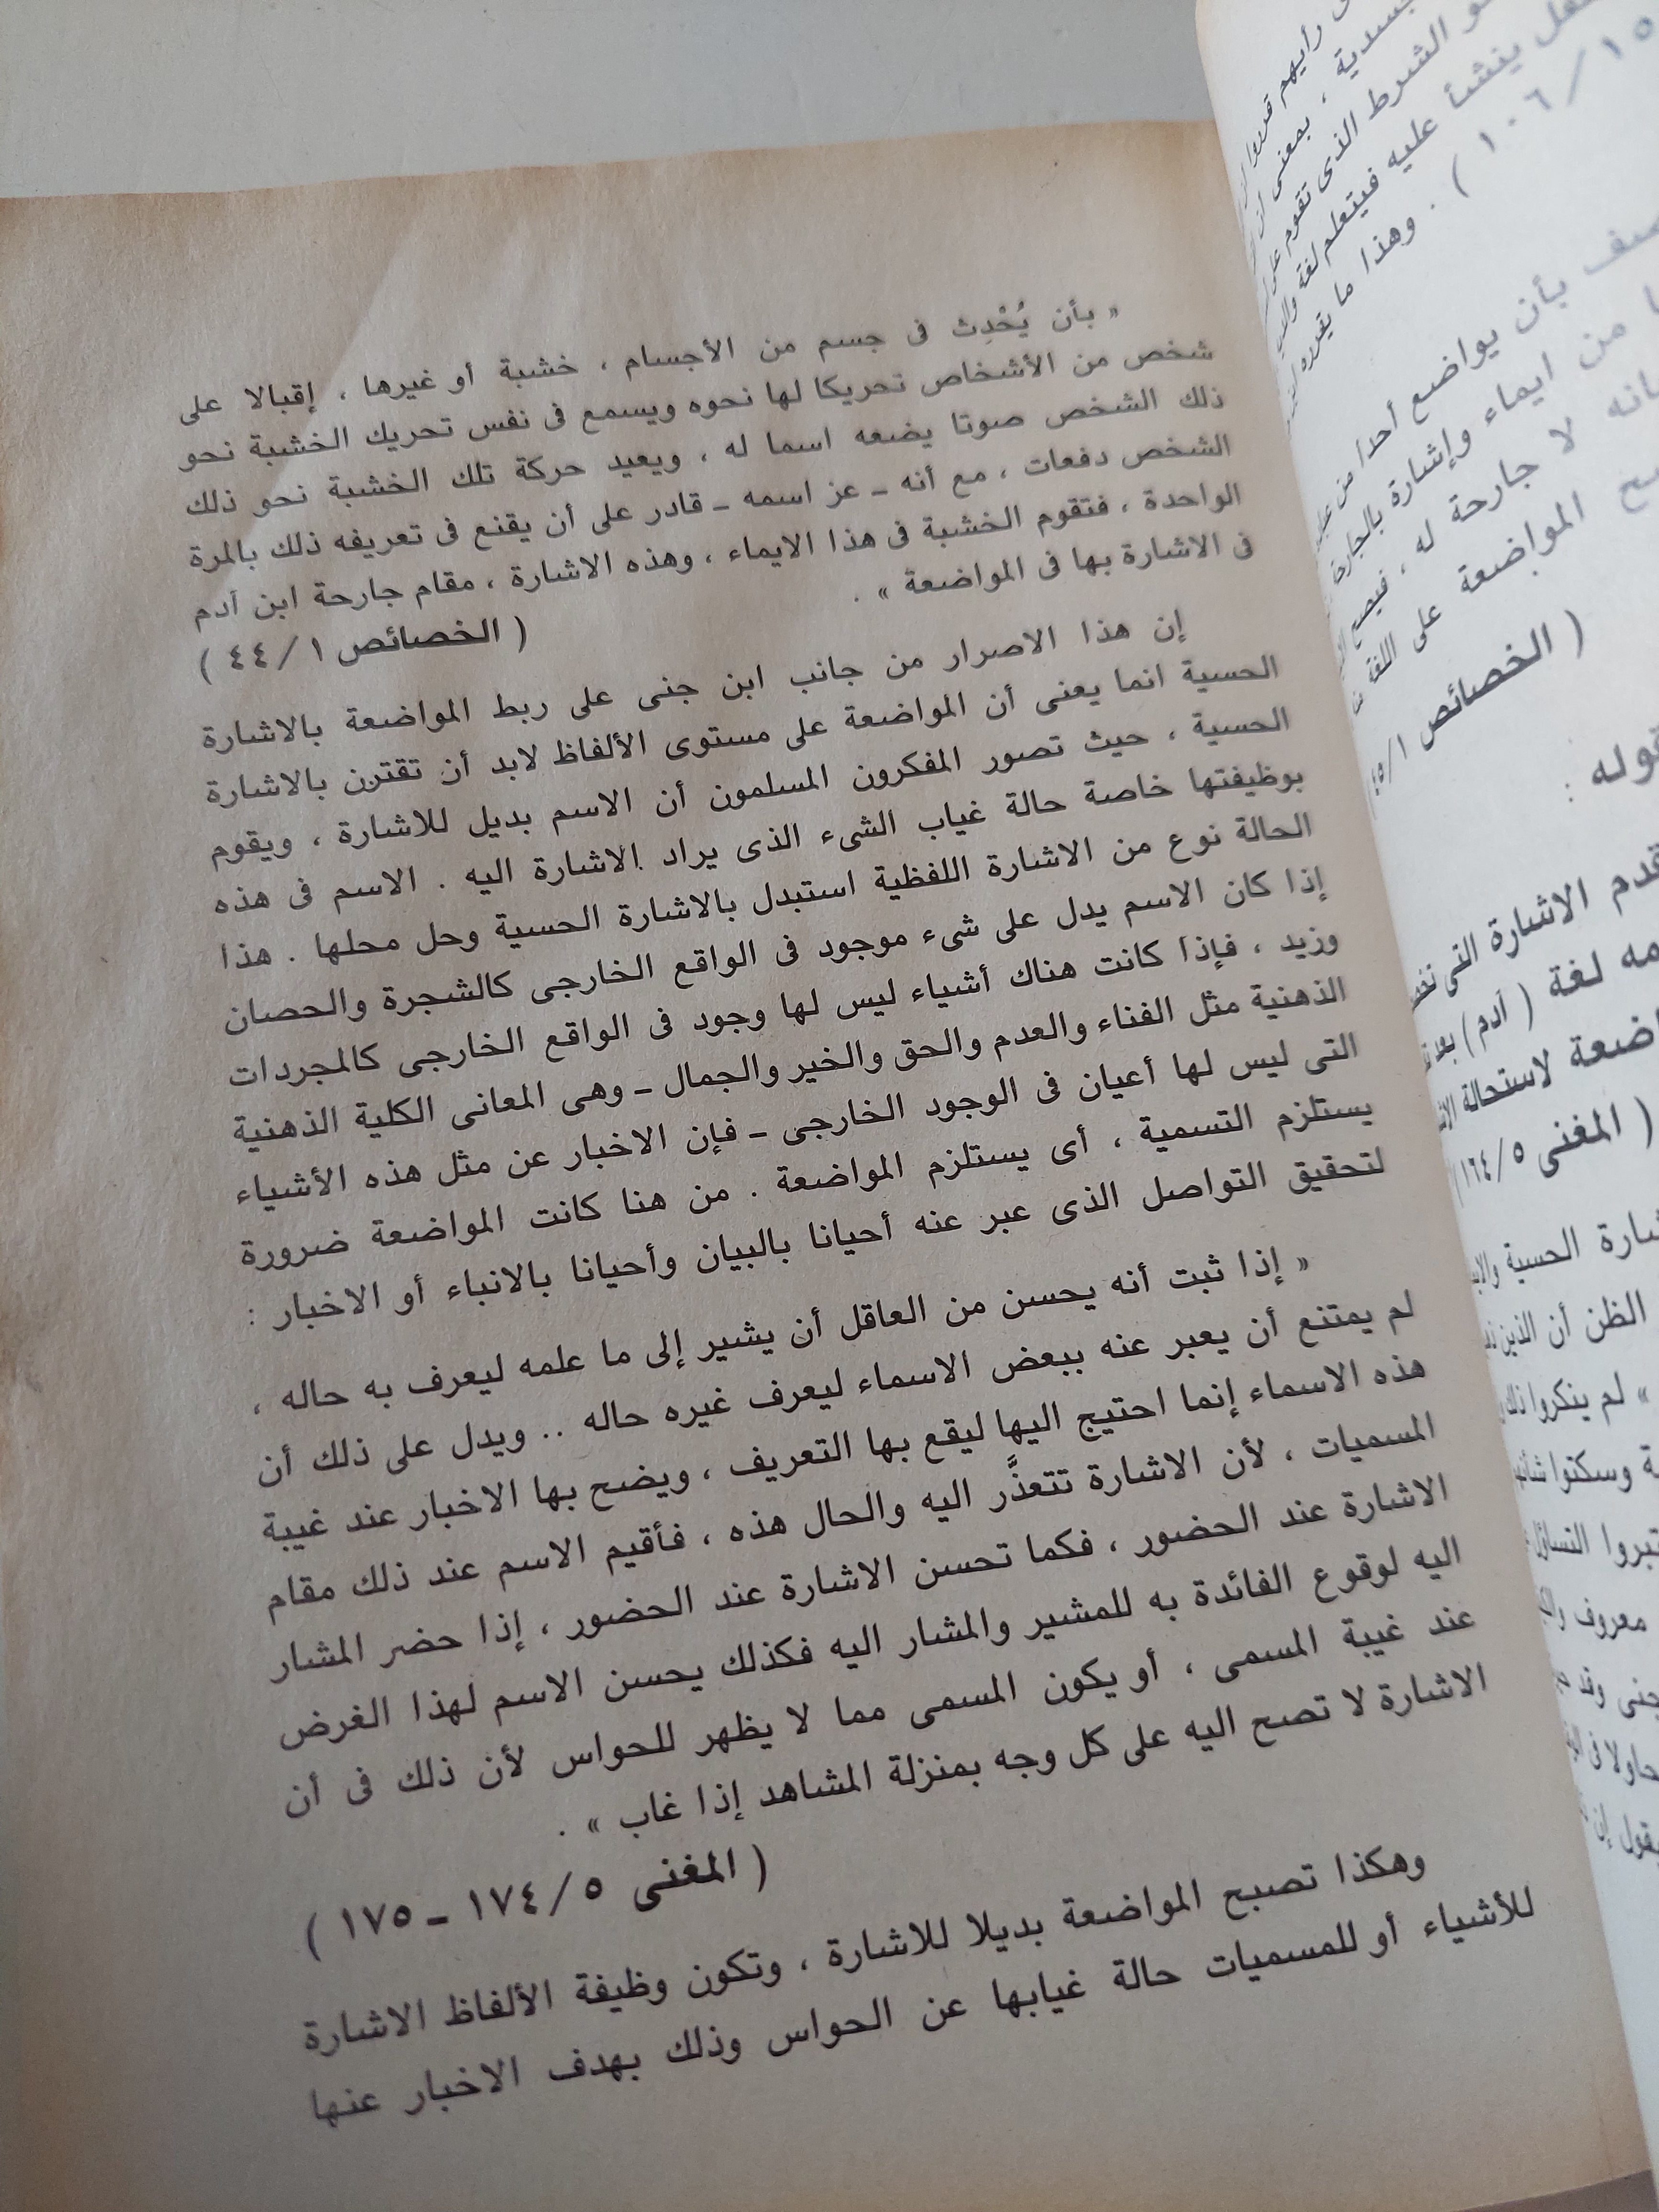 « بأن يُحْدِث فى جسم من الأجسام ، خشبة أو غيرها ، إقبالا على
شخص من الأشخاص تحريكا لها نحوه ويسمع فى نفس تحريك الخشبة نحو
ذلك الشخص صوتا يضعه اسما له ، ويعيد حركة تلك الخشبة نحو ذلك
الشخص دفعات ، مع أنه ـ عز اسمه ـ قادر على أن يقنع فى تعريفه ذلك بالمرة
الواحدة ، فتقوم الخشبة فى هذا الايماء ، وهذه الاشارة ، مقام جارحة ابن آدم
فى الاشارة بها فى المواضعة » .
( الخصائص ١/٤٤ )
إن هذا الاصرار من جانب ابن جنى على ربط المواضعة بالاشارة
الحسية انما يعنى أن المواضعة على مستوى الألفاظ لابد أن تقترن بالاشارة
الحسية ، حيث تصور المفكرون المسلمون أن الاسم بديل للاشارة ، ويقوم
بوظيفتها خاصة حالة غياب الشىء الذى يراد الاشارة اليه . الاسم فى هذه
الحالة نوع من الاشارة اللفظية استبدل بالاشارة الحسية وحل محلها . هذا
إذا كان الاسم يدل على شىء موجود فى الواقع الخارجى كالشجرة والحصان
وزيد ، فإذا كانت هناك أشياء ليس لها وجود فى الواقع الخارجى كالمجردات
الذهنية مثل الفناء والعدم والحق والخير والجمال ـ وهى المعانى الكلية الذهنية
التى ليس لها أعيان فى الوجود الخارجى ـ فإن الاخبار عن مثل هذه الأشياء
يستلزم التسمية ، أى يستلزم المواضعة . من هنا كانت المواضعة ضرورة
لتحقيق التواصل الذى عبر عنه أحيانا بالبيان وأحيانا بالانباء أو الاخبار :
« إذا ثبت أنه يحسن من العاقل أن يشير إلى ما علمه ليعرف به حاله ،
لم يمتنع أن يعبر عنه ببعض الاسماء ليعرف غيره حاله .. ويدل على ذلك أن
هذه الاسماء إنما احتيج اليها ليقع بها التعريف ، ويضح بها الاخبار عند غيبة
المسميات ، لأن الاشارة تتعذَّر اليه والحال هذه ، فأقيم الاسم عند ذلك مقام
الاشارة عند الحضور ، فكما تحسن الاشارة عند الحضور ، إذا حضر المشار
اليه لوقوع الفائدة به للمشير والمشار اليه فكذلك يحسن الاسم لهذا الغرض
عند غيبة المسمى ، أو يكون المسمى مما لا يظهر للحواس لأن ذلك فى أن
الاشارة لا تصح اليه على كل وجه بمنزلة المشاهد إذا غاب » .
( المغنى ٥/١٧٤ ـ ١٧٥ )
وهكذا تصبح المواضعة بديلا للاشارة ، وتكون وظيفة الألفاظ الاشارة
للأشياء أو للمسميات حالة غيابها عن الحواس وذلك بهدف الاخبار عنها
رأيهم
بمعنى
الشرط الذى تقوم
ينشأ عليه فيتعلم لغة
١٠٦/١٥ ) . وهذا ما يقرره
بأن يواضع أحدا من
من ايماء وإشارة بالجارحة
لا جارحة له ، فيصح
المواضعة على اللغة
( الخصائص ١/
قوله :
الاشارة التى
لغة ( آدم ) بعد
لاستحالة
( المغنى ٥/١٦٤
الحسية
الظن أن الذين
» لم ينكروا ذلك
وسكتوا
التساؤل
معروف
جنى وقد
يقول إن